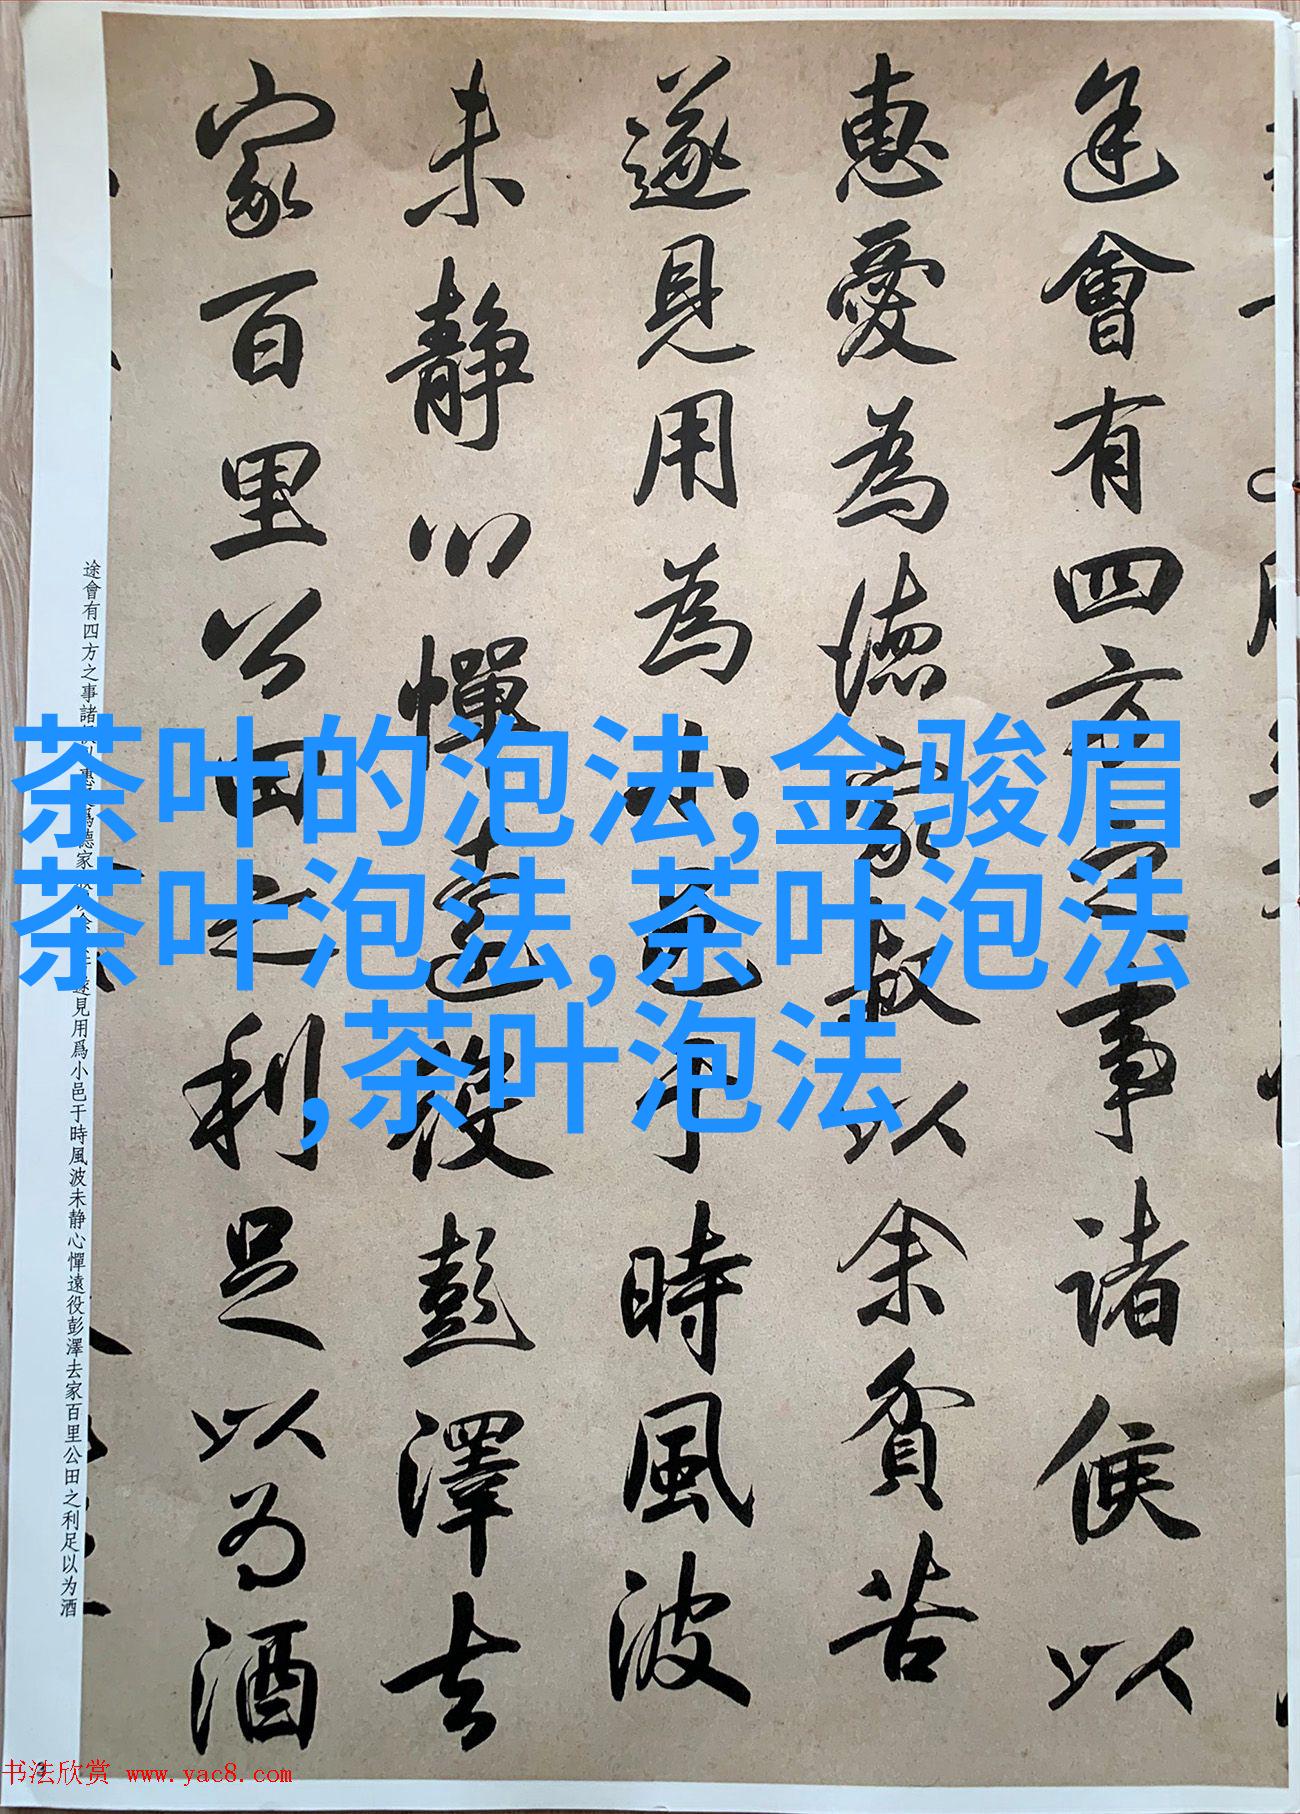 途會有四方之事諸侯以
惠愛為德家叔以余貧苦
遂見用為小邑于時風波
未靜心憚遠役彭澤去
家百里公田之利足以為酒
途會有四方之事諸侯以惠愛爲德家叔以余貧苦遂見用爲小邑于時風波未静心憚遠役彭澤去家百里公田之利足以为酒
茶叶的泡法,金骏眉
茶叶泡法,茶叶泡法
,茶叶泡法
3
书法欣赏 www.yac8.com